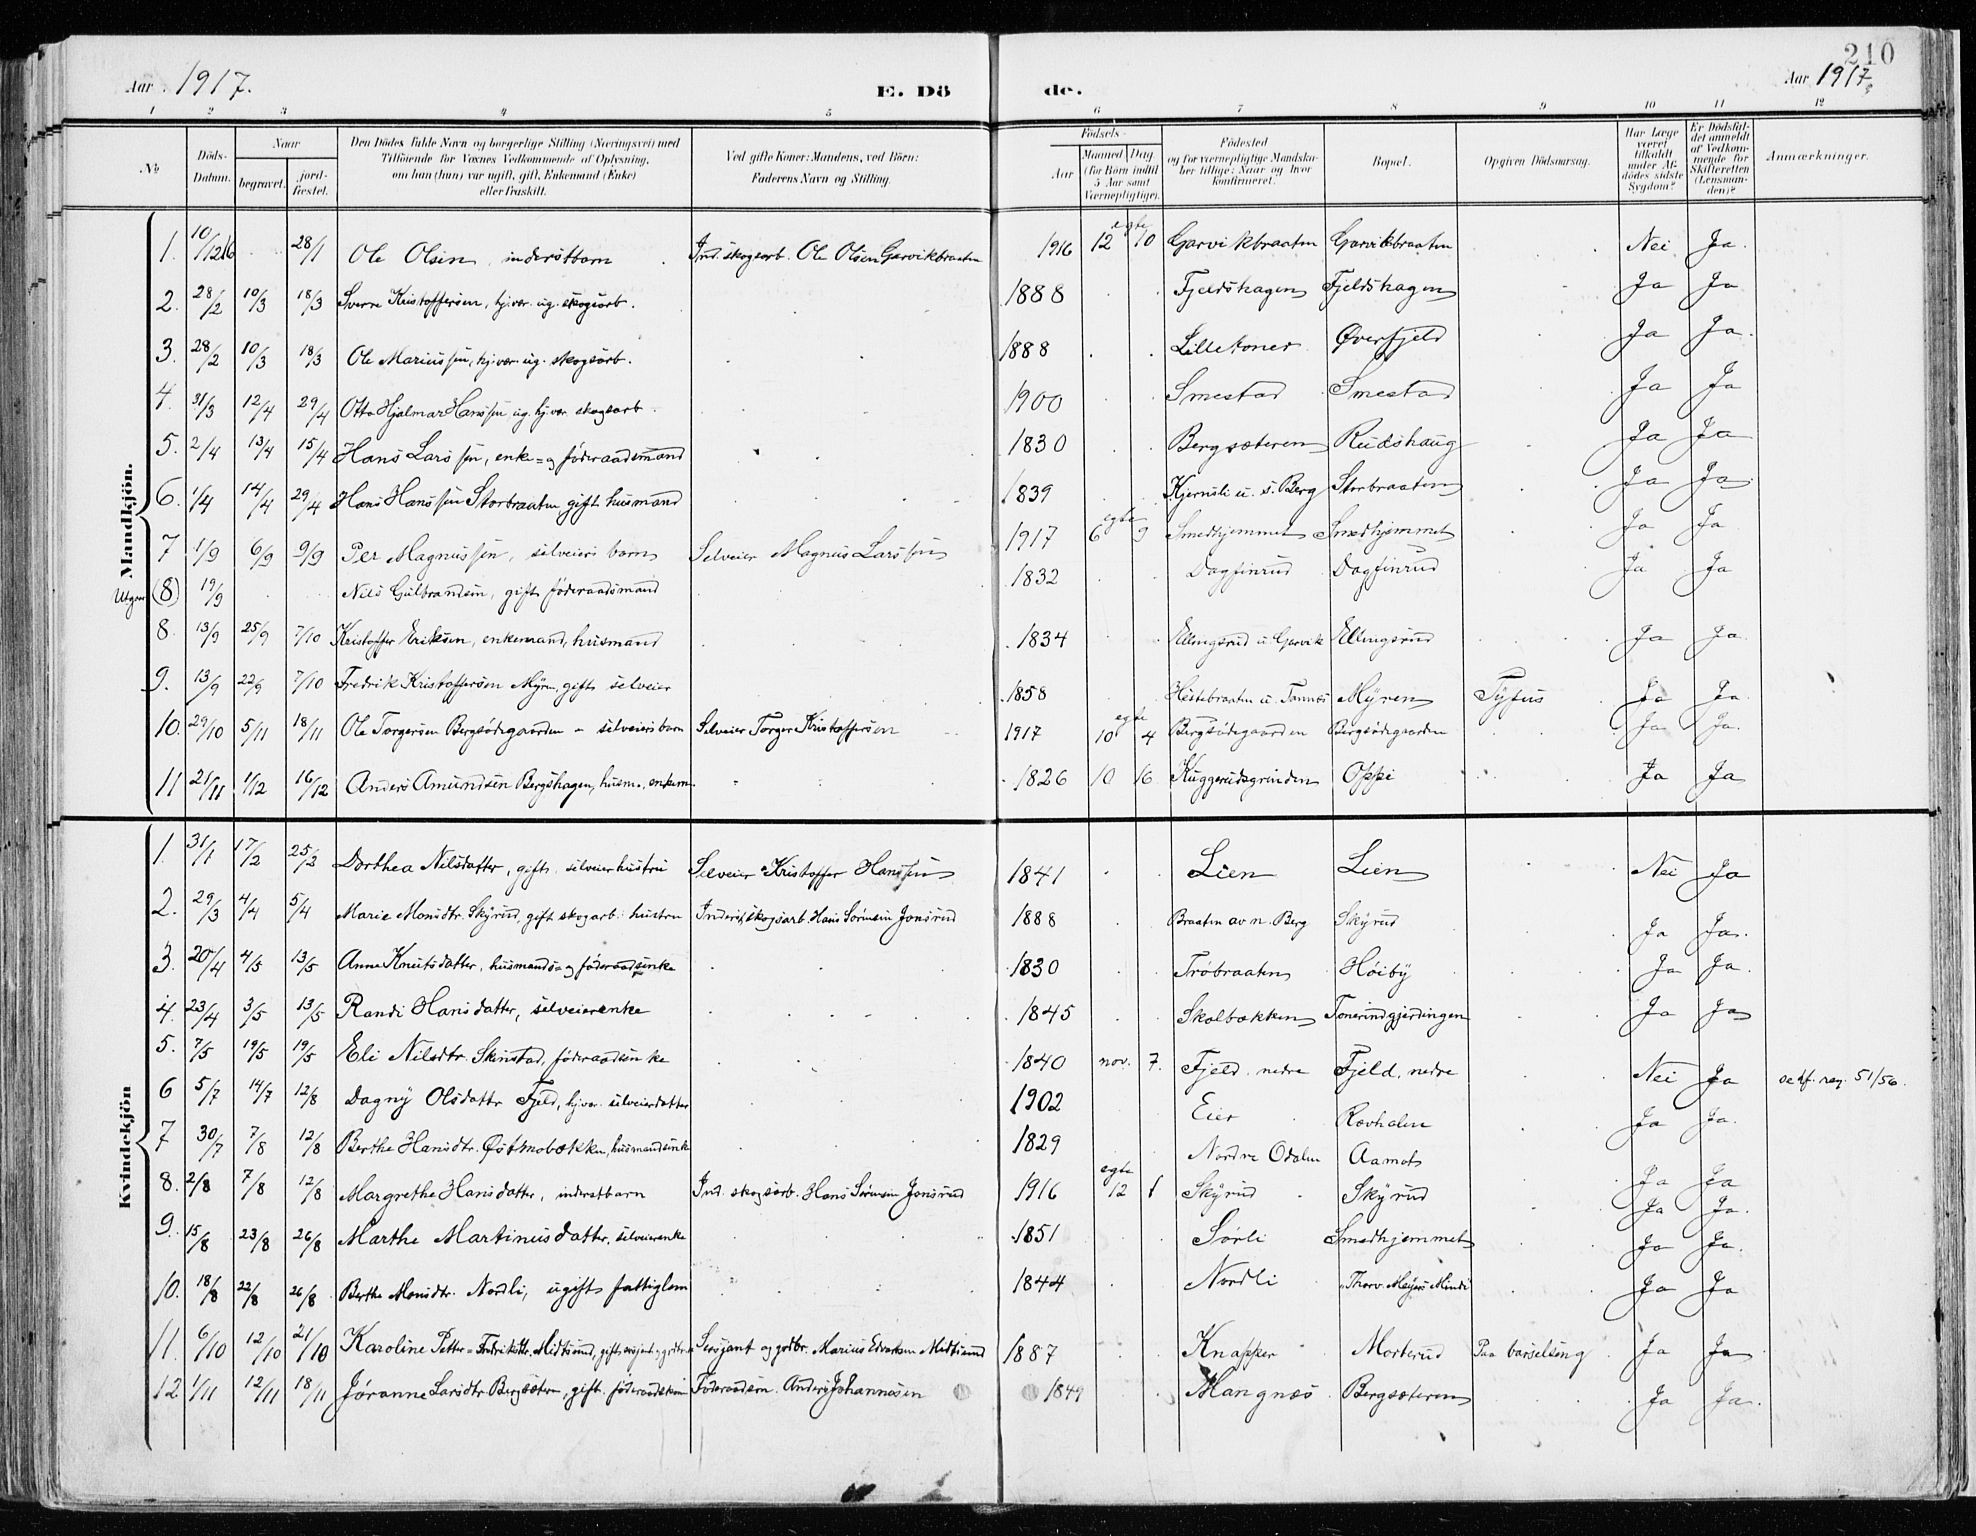 210
Aar 1917. E. Dö de. Aar 1917.
1 2 3 4 5 6 7 8 9 10 11 12
№ Döds-Datum. Naar begravet. jord-fæstet. Den Dödes fulde Navn og borgerlige Stilling (Næringsvei) med Tilföiende for Voxnes Vedkommende af Oplysning, om han (hun) var ugift, gift, Enkemand (Enke) eller fraskilt. Ved gifte Koner: Mandens, ved Börn: Faderens Navn og Stilling. Födsels- Aar Maaned Dag (for Börn indtil 5 Aar samt Værnepligtige). Födested og for værnepligtige Mandska-ber tillige: Naar og hvor konfirmeret. Bopæl. Opgiven Dödsaarsag. Har Læge været tilkaldt under Af-dödes sidste Sygdom? Er Dödsfal-det anmeldt af Vedkom-mende for Skifteretten (Lensman-den)? Anmærkninger.
Mandkjön.
1. 10/12 16 28/1 Ole Olsen inderstbarn Ind. skogsarb. Ole Olsen Garvikbraaten 1916 12 egte 10 Garvikbraaten Garvikbraaten Nei Ja
2. 28/2 10/3 18/3 Sverre Kristoffersen, hj.vær. ug. skogsarb. 1888 Fjeldshagen Fjeldshagen Ja Ja
3. 28/2 10/3 18/3 Ole Mariussen, hj.vær. ug. skogsarb. 1888 Lilletoner Øverfjeld Ja Ja
4. 31/3 12/4 29/4 Otto Hjalmar Hanssen ug. hj.vær. skogsarb. 1900 Smestad Smestad Ja Ja
5. 2/4 13/4 15/4 Hans Larssen, enke- og föderaadsmand 1830 Bergsæteren Rudshaug Ja Ja
6. 1/4 14/4 29/4 Hans Hanssen Storbraaten, gift husmand 1839 Kjernsli u. s. Berg Storbraaten Ja Ja
7 1/9 6/9 9/9 Per Magnussen, selveiers barn Selveier Magnus Larssen 1917 6 egte 9 Smedhjemmet Smedhjemmet Ja Ja
Utgaar (8) 19/9 Nils Gulbrandsen, gift föderaadsmand 1832 Dagfinrud Dagfinrud Ja Ja
8. 13/9 25/9 7/10 Kristoffer Eriksen, enkemand, husmand 1834 Ellingsrud u Garvik Ellingsrud Ja Ja
9. 13/9 22/9 7/10 Fredrik Kristoffersen Myren, gift selveier 1858 Hestebraaten u. Tannes Myren Tyfus Ja Ja
10. 29/10 5/11 18/11 Ole Torgersen Bergsödegaarden - selveiersbarn Selveier Torger Kristoffersen 1917 10 egte 4 Bergsödegaarden Bergsödegaarden Ja Ja
11 21/11 1/12 16/12 Anders Amundsen Bergshagen, husm., enkem. 1826 10 16 Kuggerudsgrinden Oppi Ja Ja
Kvindekjön
1. 31/1 17/2 25/2 Dorthea Nilsdatter, gift selveierhustru Selveier Kristoffer Hanssen 1841 Lien Lien Nei Ja
2. 29/3 4/4 5/4 Marie Monsdtr. Skyrud, gift skogarb. hustru Inderst, skogsarb. Hans Sörensen Jonsrud 1888 Braaten av n. Berg Skyrud Ja Ja.
3. 20/4 4/5 13/5 Anne Knutsdatter, husmands- og föderaadsenke 1830 Tröbraaten Höiby Ja Ja
4. 23/4 3/5 13/5 Randi Hansdatter, selveierenke 1845 Skolbækken Tonerindgjerdingen Ja Ja
5. 7/5 19/5 19/5 Eli Nilsdtr. Skinstad, föderaadsenke 1840 nov. 7. Fjeld nedre Fjeld, nedre Nei Ja se kf. reg. 51/56.
6 5/7 14/7 12/8 Dagny Olsdattr Fjeld, hj.vær. selveierdatter 1902 Eier Rovhalen Ja Ja
7 30/7 7/8 12/8 Berthe Hansdtr. Östmobækken, husmandsenke 1829 Nordre Odalen Aamot Ja Ja
8. 2/8 7/8 12/8 Margrethe Hansdatter, inderstbarn Ind. skogsarb. Hans Sörensen Jonsrud 1916 egte 12 1 Skyrud Skyrud Ja Ja.
9. 15/8 23/8 26/8 Marthe Martinusdatter, selveierenke 1851 Sörli Smedhjemmet Ja Ja.
10. 18/8 22/8 26/8 Berthe Monsdtr. Nordli, ugift fattiglem 1844 Nordli Thorv. Meyers Minde Ja Ja
11. 6/10 12/10 21/10 Karoline Petter- Fredrikdtr. Midtsund, gift Sersjant og grdbr. Marius Edvartsen Midtsund 1887 Knapper Morterud Paa barselseng Ja Ja
12 1/11 12/11 18/11 Jöranne Larsdtr Bergsæteren, gift. Föderaadsm. Anders Johannesen 1849 Mangnæs Bergsæteren Ja Ja.